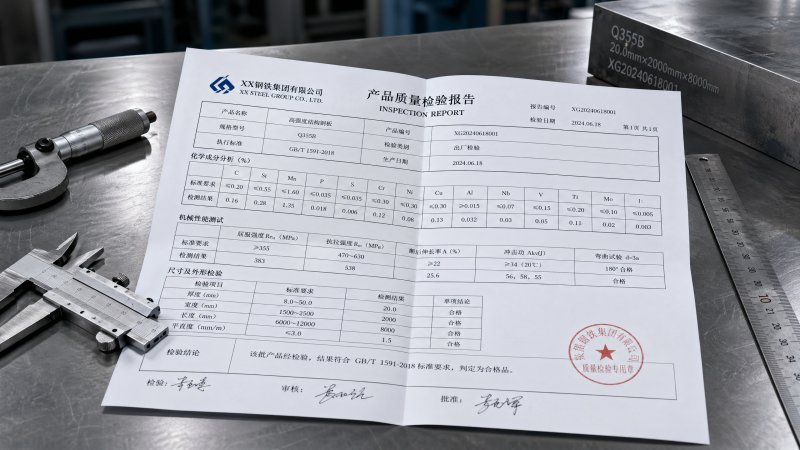 Q355B
20.0mm×2000mm×8000mm
XG20240618001
XX钢铁集团有限公司
XX STEEL GROUP CO., LTD.
产品质量检验报告
INSPECTION REPORT
报告编号 XG20240618001
检验日期 2024.06.18 第1页 共1页
产品名称 高强度结构钢板 产品编号 XG20240618001
规格型号 Q355B 检验类别 出厂检验
执行标准 GB/T 1591-2018 生产日期 2024.06.18
化学成分分析 (%)
C Si Mn P S Cr Ni Cu Al Nb V Ti Mo
标准要求 ≤0.20 ≤0.55 ≤1.60 ≤0.035 ≤0.035 ≤0.30 ≤0.30 ≤0.30 ≥0.015 ≤0.07 ≤0.15 ≤0.20 ≤0.10 ≤0.005
检测结果 0.16 0.28 1.35 0.018 0.006 0.12 0.08 0.13 0.032 0.03 0.05 0.11 0.02 0.003
机械性能测试
屈服强度 (MPa) 抗拉强度 (MPa) 断后伸长率 A (%) 冲击功 Akv(J) 弯曲试验 d=3a
标准要求 ≥355 470~630 ≥22 ≥34 (20℃) 180° 合格
检测结果 383 538 25.6 56, 58, 55 合格
尺寸及外形检验
检验项目 标准要求 检测结果 单项结论
厚度 (mm) 8.0~50.0 20.0 合格
宽度 (mm) 1500~2500 2000 合格
长度 (mm) 6000~12000 8000 合格
平直度 (mm/m) ≤3.0 1.5 合格
检验结论 该批产品经检验，结果符合 GB/T 1591-2018 标准要求，判定为合格品。
钢铁集团有限公司
质量检验专用章
检验:
审核:
批准: